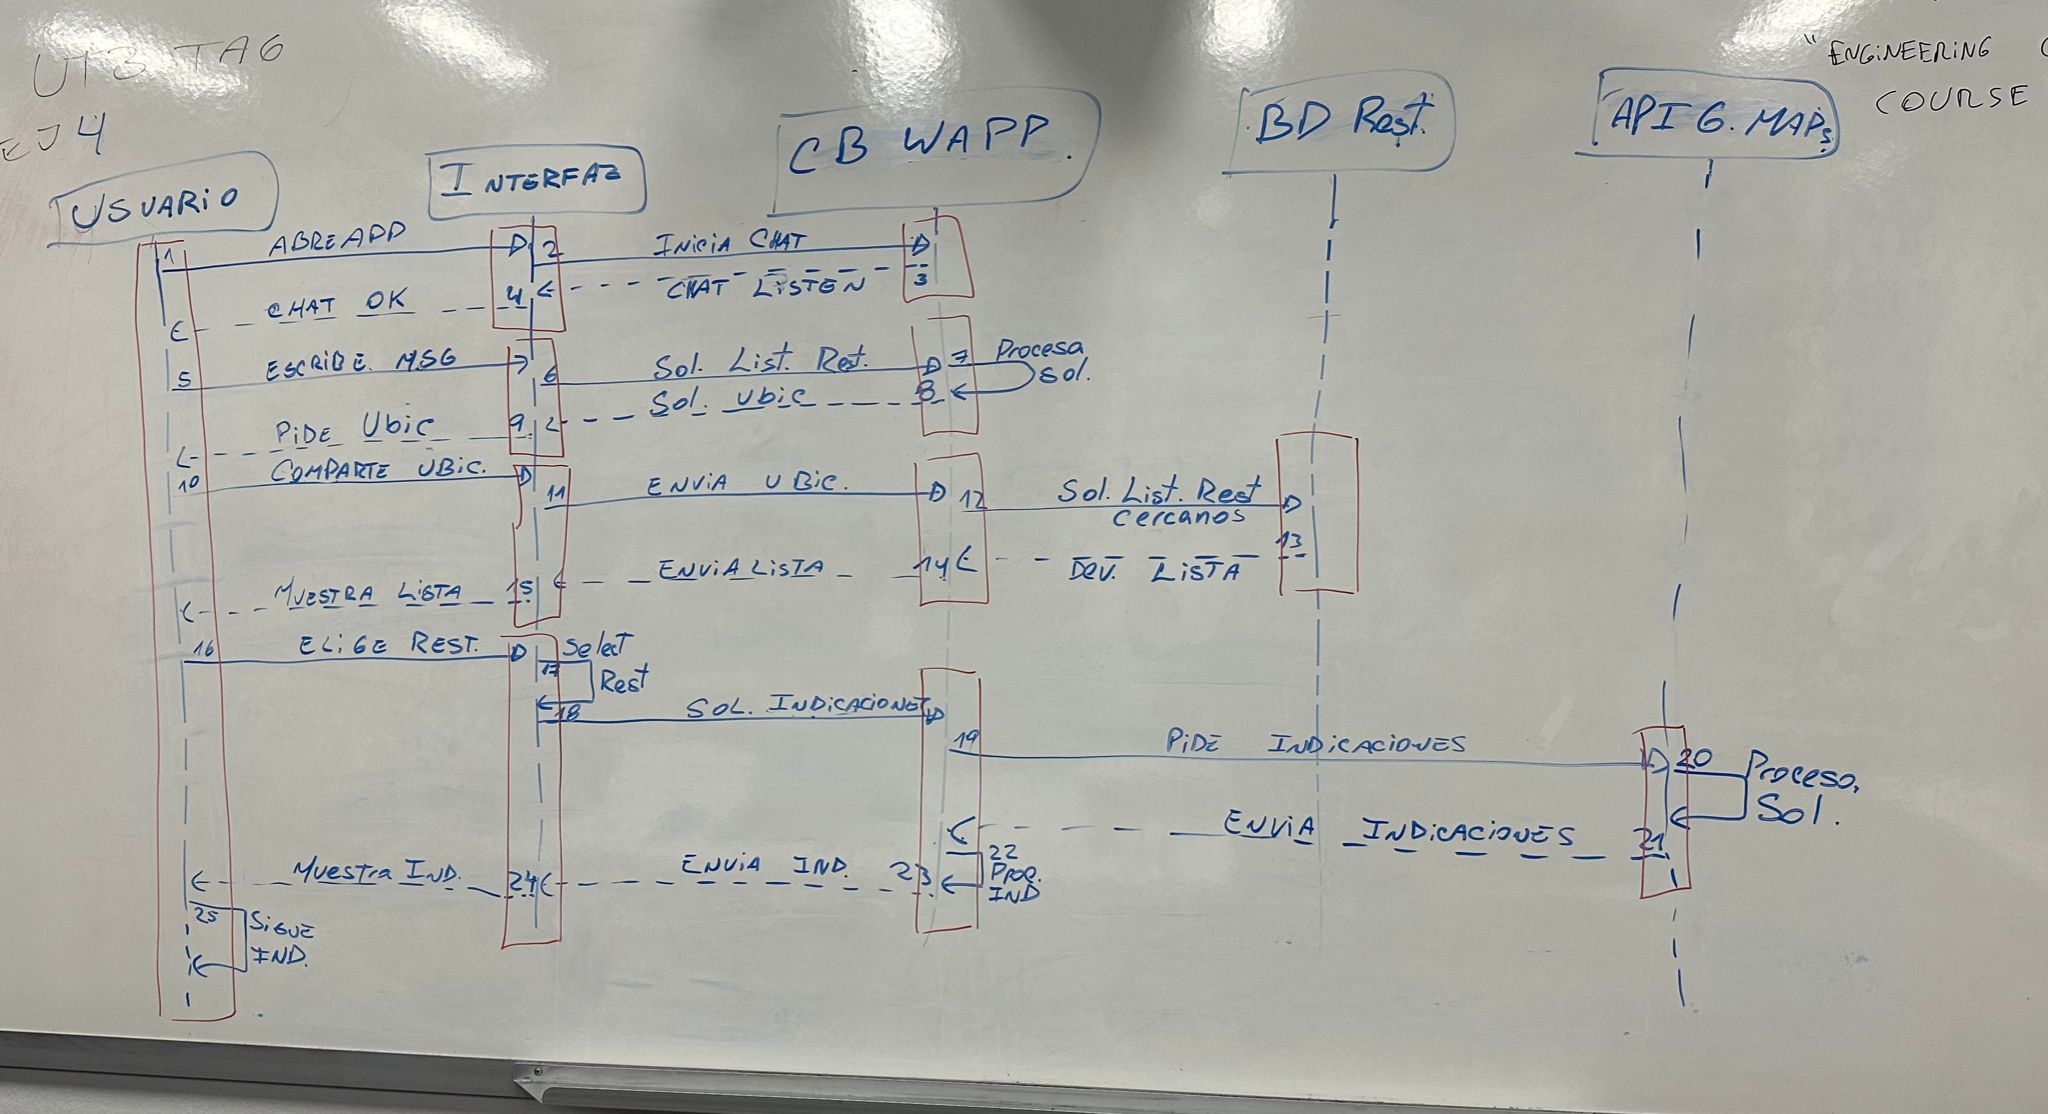 UT3 TA6
EJ4
"ENGINEERING
COURSE
USUARIO
INTERFAZ
CB WAPP.
BD Rest.
API G. MAPs
1 ABRE APP
2 INICIA CHAT
CHAT LISTEN 3
CHAT OK 4
5 ESCRIBE MSG
6 Sol. List. Rest.
7 Procesa
sol.
Sol. Ubic 8
PIDE Ubic 9
10 COMPARTE UBIC.
11 ENVIA UBIC.
12 Sol. List. Rest
cercanos
DEV. LISTA 13
ENVIA LISTA 14
MUESTRA LISTA 15
16 ELIGE REST.
17 Select
Rest
18 SOL. INDICACIONES
19 PIDE INDICACIONES
20 Proceso,
Sol.
ENVIA INDICACIONES 21
22
Proc.
IND
ENVIA IND. 23
Muestra IND. 24
25 SIGUE
IND.